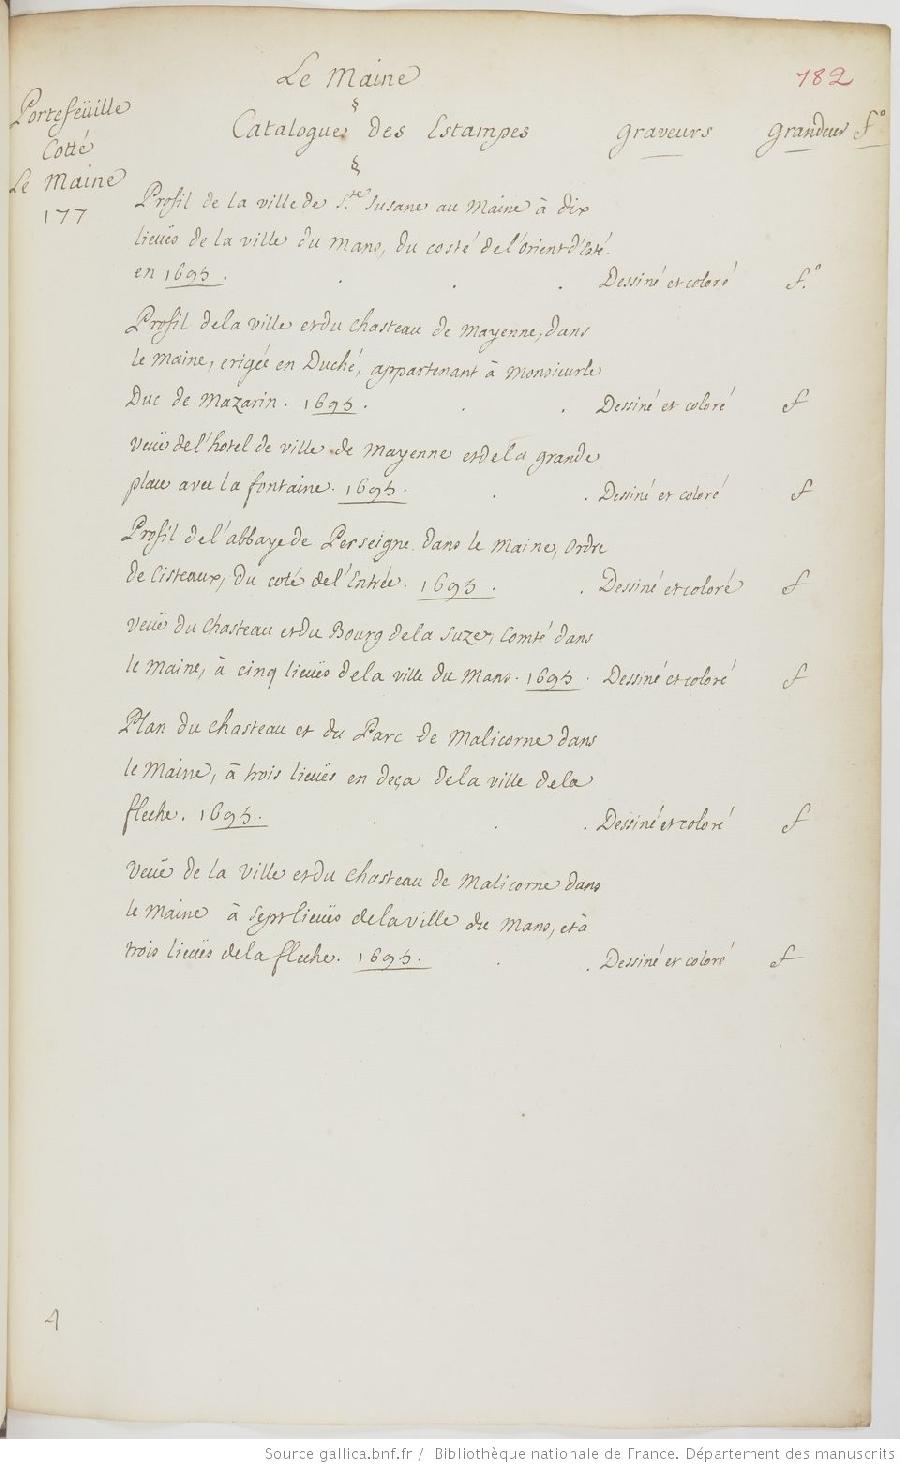 Le Maine
782
Portefeüille
Cotté
Le Maine
177
§
Catalogue des Estampes
graveurs
grandeur f.°
§
Profil de la ville de S.te Susane au Maine à dix
lieües de la ville du Mans, du costé de l'orient d'esté.
en 1695. . . . Dessiné et coloré f.°
Profil de la ville et du chasteau de Mayenne, dans
le Maine, erigée en Duché, appartenant à Monsieur le
Duc de Mazarin. 1695. . . Dessiné et coloré f
Veüe de l'hotel de ville de Mayenne et de la grande
place avec la fontaine. 1695. . . Dessiné et coloré f
Profil de l'abbaye de Perseigne dans le Maine, ordre
de Cisteaux, du coté de l'Entrée. 1695. . Dessiné et coloré f
Veüe du Chasteau et du Bourg de la Suze, Comté dans
le Maine, à cinq lieües de la ville du Mans. 1695. Dessiné et coloré f
Plan du chasteau et du Parc de Malicorne dans
le Maine, à trois lieües en deça de la ville de la
fleche. 1695. . . Dessiné et coloré f
Veüe de la ville et du chasteau de Malicorne dans
le Maine à sept lieües de la ville du Mans, et à
trois lieües de la fleche. 1695. . . Dessiné et coloré f
4
Source gallica.bnf.fr / Bibliothèque nationale de France. Département des manuscrits